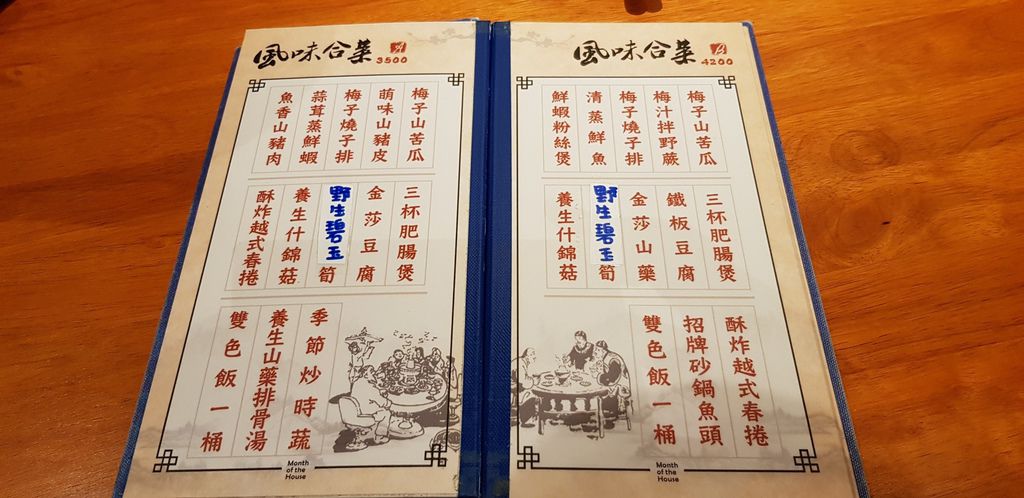 風味合菜 A
3500
梅子山苦瓜
萌味山豬皮
梅子燒子排
蒜茸蒸鮮蝦
魚香山豬肉
三杯肥腸煲
金莎豆腐
野生碧玉筍
養生什錦菇
酥炸越式春捲
季節炒時蔬
養生山藥排骨湯
雙色飯一桶
Month
of the
House
風味合菜 B
4200
梅子山苦瓜
梅汁拌野蕨
梅子燒子排
清蒸鮮魚
鮮蝦粉絲煲
三杯肥腸煲
鐵板豆腐
金莎山藥
野生碧玉筍
養生什錦菇
酥炸越式春捲
招牌砂鍋魚頭
雙色飯一桶
Month
of the
House